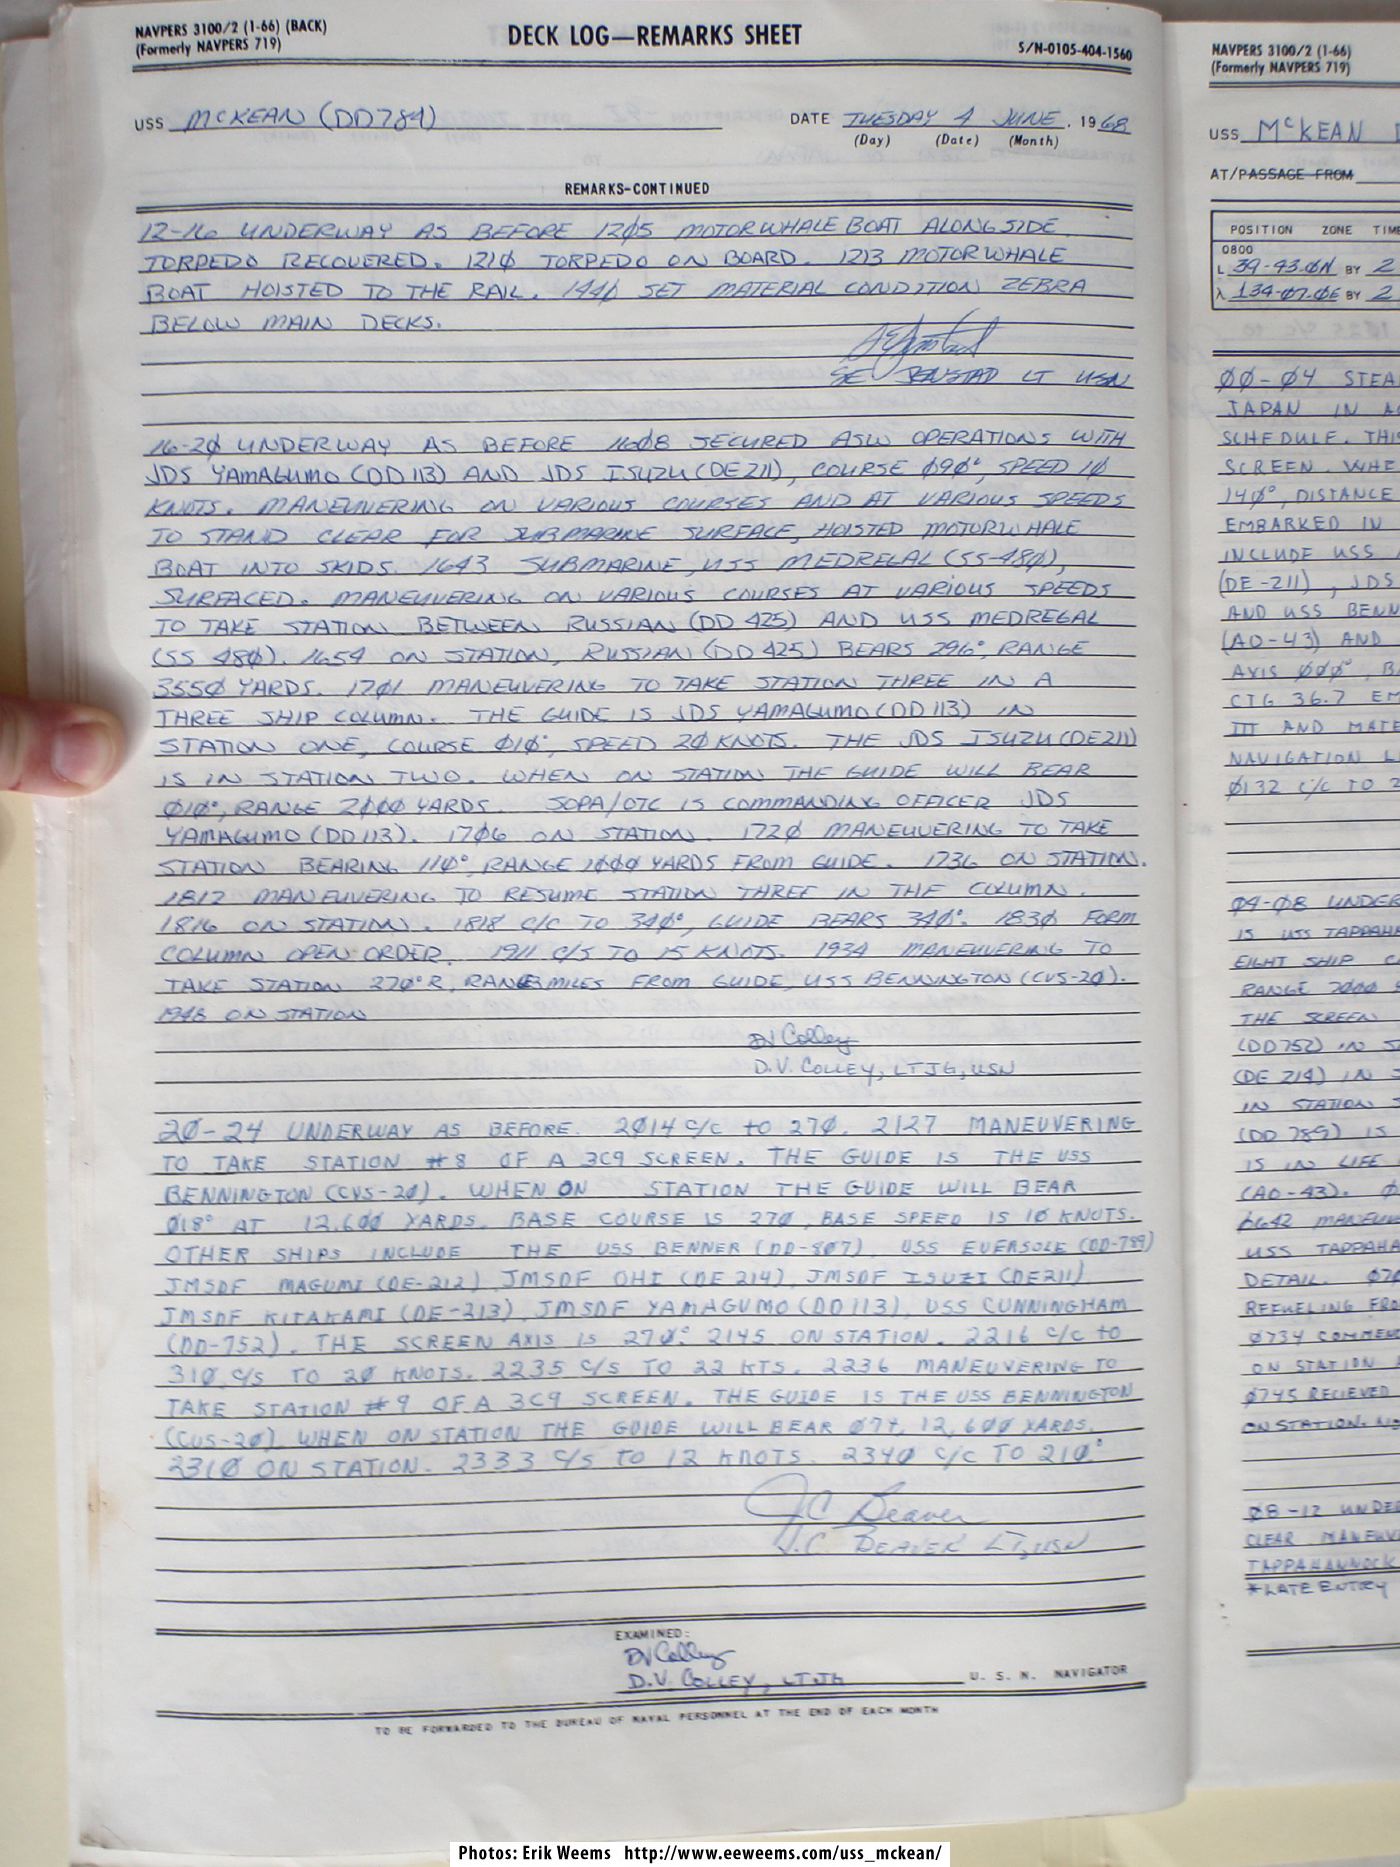 NAVPERS 3100/2 (1-66) (BACK)
(Formerly NAVPERS 719)
DECK LOG—REMARKS SHEET
S/N-0105-404-1560
USS MCKEAN (DD784)
DATE TUESDAY 4 JUNE, 1968
(Day) (Date) (Month)
REMARKS-CONTINUED
12-16 UNDERWAY AS BEFORE 12Ø5 MOTORWHALE BOAT ALONGSIDE
TORPEDO RECOVERED. 121Ø TORPEDO ON BOARD. 1213 MOTORWHALE
BOAT HOISTED TO THE RAIL. 144Ø SET MATERIAL CONDITION ZEBRA
BELOW MAIN DECKS.
SE JENSTAD LT USN
16-2Ø UNDERWAY AS BEFORE 16Ø8 SECURED ASW OPERATIONS WITH
JDS YAMAGUMO (DD 113) AND JDS ISUZU (DE 211), COURSE Ø9Ø°, SPEED 1Ø
KNOTS. MANEUVERING ON VARIOUS COURSES AND AT VARIOUS SPEEDS
TO STAND CLEAR FOR SUBMARINE SURFACE, HOISTED MOTORWHALE
BOAT INTO SKIDS. 1643 SUBMARINE, USS MEDREGAL (SS-48Ø),
SURFACED. MANEUVERING ON VARIOUS COURSES AT VARIOUS SPEEDS
TO TAKE STATION BETWEEN RUSSIAN (DD 425) AND USS MEDREGAL
(SS 48Ø). 1654 ON STATION, RUSSIAN (DD 425) BEARS 296°, RANGE
355Ø YARDS. 17Ø1 MANEUVERING TO TAKE STATION THREE IN A
THREE SHIP COLUMN. THE GUIDE IS JDS YAMAGUMO (DD 113) IN
STATION ONE, COURSE Ø1Ø°, SPEED 2Ø KNOTS. THE JDS ISUZU (DE211)
IS IN STATION TWO. WHEN ON STATION THE GUIDE WILL BEAR
Ø1Ø°, RANGE 2ØØØ YARDS. SOPA/OTC IS COMMANDING OFFICER JDS
YAMAGUMO (DD 113). 17Ø6 ON STATION. 172Ø MANEUVERING TO TAKE
STATION BEARING 11Ø°, RANGE 1ØØØ YARDS FROM GUIDE. 1736 ON STATION.
1812 MANEUVERING TO RESUME STATION THREE IN THE COLUMN.
1816 ON STATION. 1818 C/C TO 34Ø°, GUIDE BEARS 34Ø°. 183Ø FORM
COLUMN OPEN ORDER. 1911 C/S TO 15 KNOTS. 1934 MANEUVERING TO
TAKE STATION 27Ø°R, RANGE MILES FROM GUIDE, USS BENNINGTON (CVS-2Ø).
1948 ON STATION
DV Colley
D.V. COLLEY, LTJG, USN
2Ø-24 UNDERWAY AS BEFORE. 2Ø14 C/C TO 27Ø. 2127 MANEUVERING
TO TAKE STATION #8 OF A 3C9 SCREEN. THE GUIDE IS THE USS
BENNINGTON (CVS-2Ø). WHEN ON STATION THE GUIDE WILL BEAR
Ø18° AT 12,6ØØ YARDS. BASE COURSE IS 27Ø, BASE SPEED IS 1Ø KNOTS.
OTHER SHIPS INCLUDE THE USS BENNER (DD-8Ø7), USS EVERSOLE (DD-789)
JMSDF MAGUMI (DE-212), JMSDF OHI (DE 214), JMSDF ISUZI (DE211)
JMSDF KITAKAMI (DE-213), JMSDF YAMAGUMO (DD113), USS CUNNINGHAM
(DD-752). THE SCREEN AXIS IS 27Ø°. 2145 ON STATION. 2216 C/C TO
31Ø C/S TO 2Ø KNOTS. 2235 C/S TO 22 KTS. 2236 MANEUVERING TO
TAKE STATION #9 OF A 3C9 SCREEN. THE GUIDE IS THE USS BENNINGTON
(CVS-2Ø) WHEN ON STATION THE GUIDE WILL BEAR Ø74, 12,6ØØ YARDS.
231Ø ON STATION. 2333 C/S TO 12 KNOTS. 234Ø C/C TO 21Ø°
JC Beaver
J.C. BEAVER LT, USN
EXAMINED:
DV Colley
D.V. COLLEY, LTJG U. S. N. NAVIGATOR
TO BE FORWARDED TO THE BUREAU OF NAVAL PERSONNEL AT THE END OF EACH MONTH
NAVPERS 3100/2 (1-66)
(Formerly NAVPERS 719)
USS McKEAN
AT/PASSAGE FROM
POSITION ZONE TIME
0800
L 39-43.ØN BY 2
λ 134-Ø7.ØE BY 2
ØØ-Ø4 STEA
JAPAN IN
SCHEDULE. THIS
SCREEN. WHE
14Ø°, DISTANCE
EMBARKED IN
INCLUDE USS
(DE-211), JDS
AND USS BENN
(AO-43) AND
AXIS ØØØ°, B
CTG 36.7 EM
III AND MATE
NAVIGATION L
Ø132 C/C TO 2
Ø4-Ø8 UNDER
IS USS TAPPAHA
EIGHT SHIP C
RANGE 2ØØØ
THE SCREEN
(DD752) IN S
(DE 214) IN
IN STATION
(DD 789) IS
IS IN LIFE
(AO-43).
Ø642 MANEUV
USS TAPPAHA
DETAIL. Ø7
REFUELING FRO
Ø734 COMMEN
ON STATION
Ø745 RECIEVED
ON STATION. NO
Ø8-12 UNDE
CLEAR MANEUV
TAPPAHANNOCK
*LATE ENTRY
Photos: Erik Weems http://www.eeweems.com/uss_mckean/